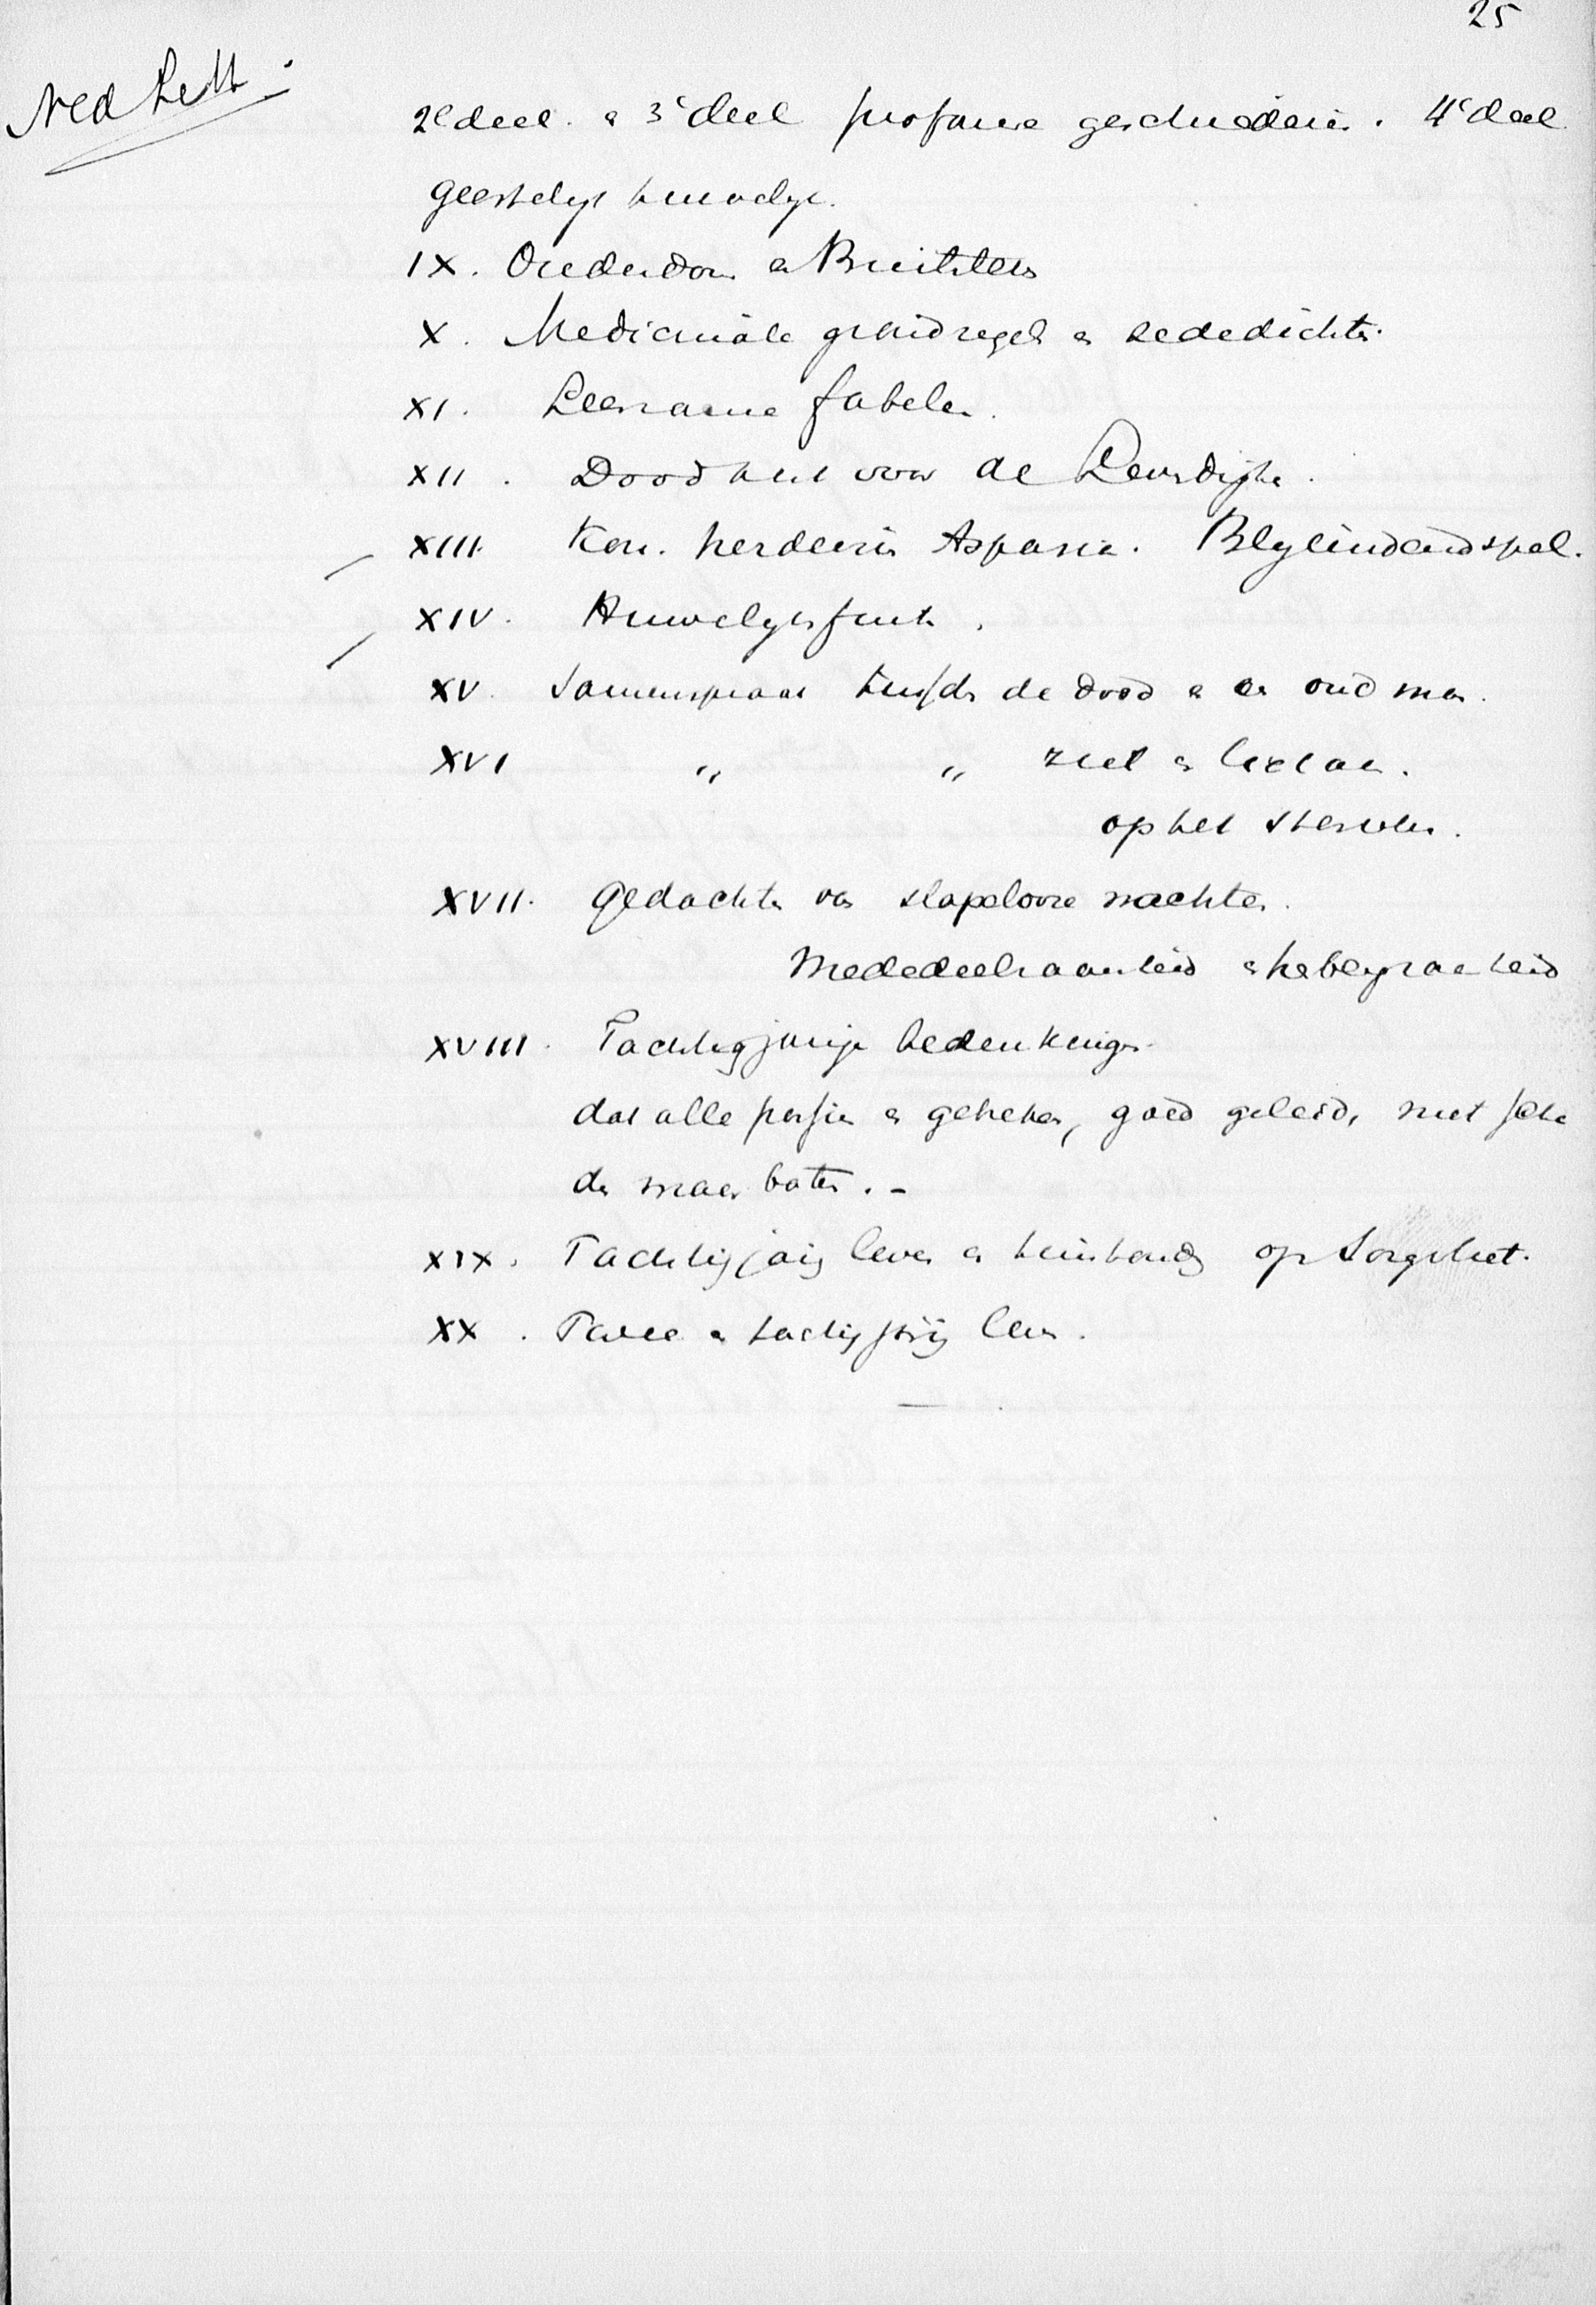 25
Ned Lett.
2e deel. & 3e deel profane geschiedenis. 4e deel
geestelijk huwelijk.
IX. Ouderdom en Buitenleven
X. Medicinale grondregels en zededichten.
XI. Leerzame fabelen.
XII. Doodkist voor de Levendige.
XIII. Kon. herderin Aspasia. Blyeindendspel.
XIV. Huwelyksfuik.
XV. Samenspraak tusschen de dood en een oud man.
XVI „ „ ziel en lichaam.
op het sterven.
XVII. Gedachten van slapelooze nachten.
Mededeelzaamheid en hebbelykheid
XVIII. Tachtigjarige bedenkingen.
dat alle passien en gebreken, goed geleid, niet scha
den maar baten. -
XIX. Tachtigjarig leven en huishouding op Sorgvliet.
XX. Twee en tachtigjarig leven.